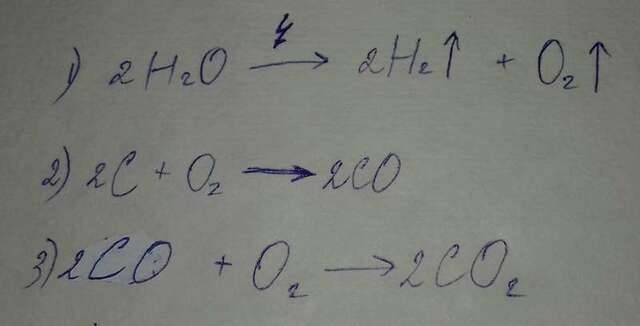 1) 2H₂O → 2H₂↑ + O₂↑
2) 2C + O₂ → 2CO
3) 2CO + O₂ → 2CO₂